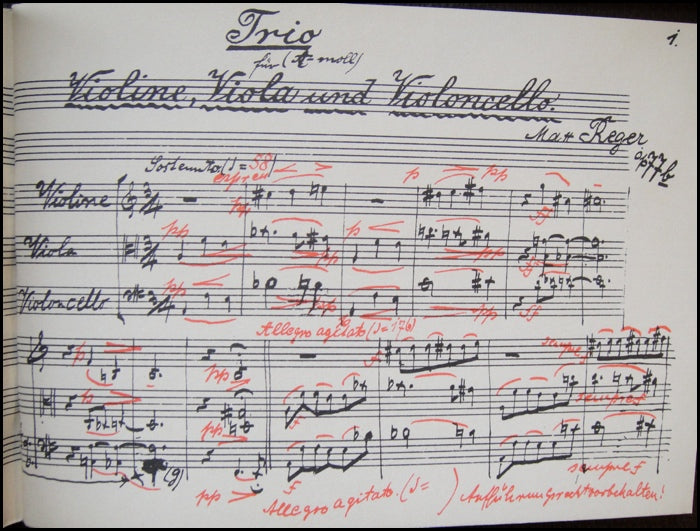 Trio
1.
für (A-moll)
Violine, Viola und Violoncello.
Max Reger
op 77b
Sostenuto (♩=58)
espress
p pp
Violine pp ff
pp p
Viola ff
pp pp pp
Violoncello ff
Allegro agitato (♩=176)
p pp f sempre f
pp f sempre f
(g) sempre f
pp f
Allegro agitato. (♩= ) Aufführungsrecht vorbehalten!